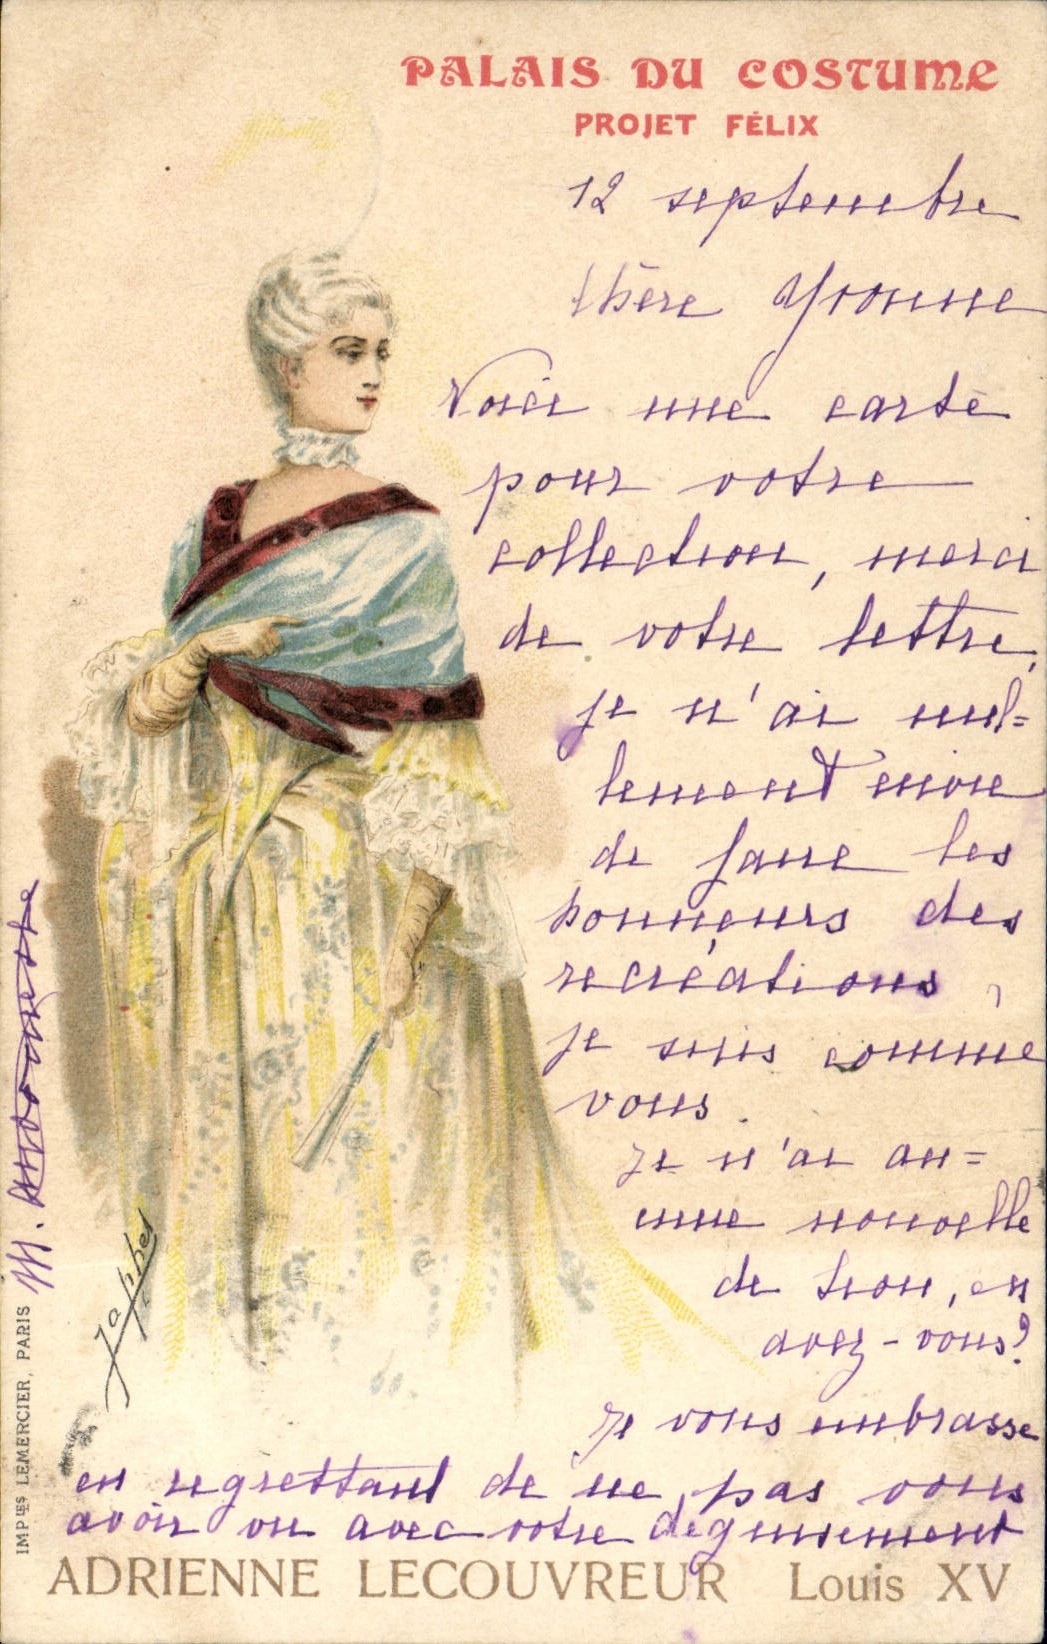 PALAIS DU COSTUME
PROJET FÉLIX
12 septembre
Chère Yvonne
Voici une carte
pour votre
collection, merci
de votre lettre,
je n'ai nul=
lement envie
de faire les
honneurs des
recréations,
je suis comme
vous.
Je n'ai au=
cune nouvelle
de Lion, en
avez-vous?
Je vous embrasse
en regrettant de ne pas vous
avoir vu avec votre déguisement
M.
Japhet
IMP IES LEMERCIER, PARIS
ADRIENNE LECOUVREUR Louis XV